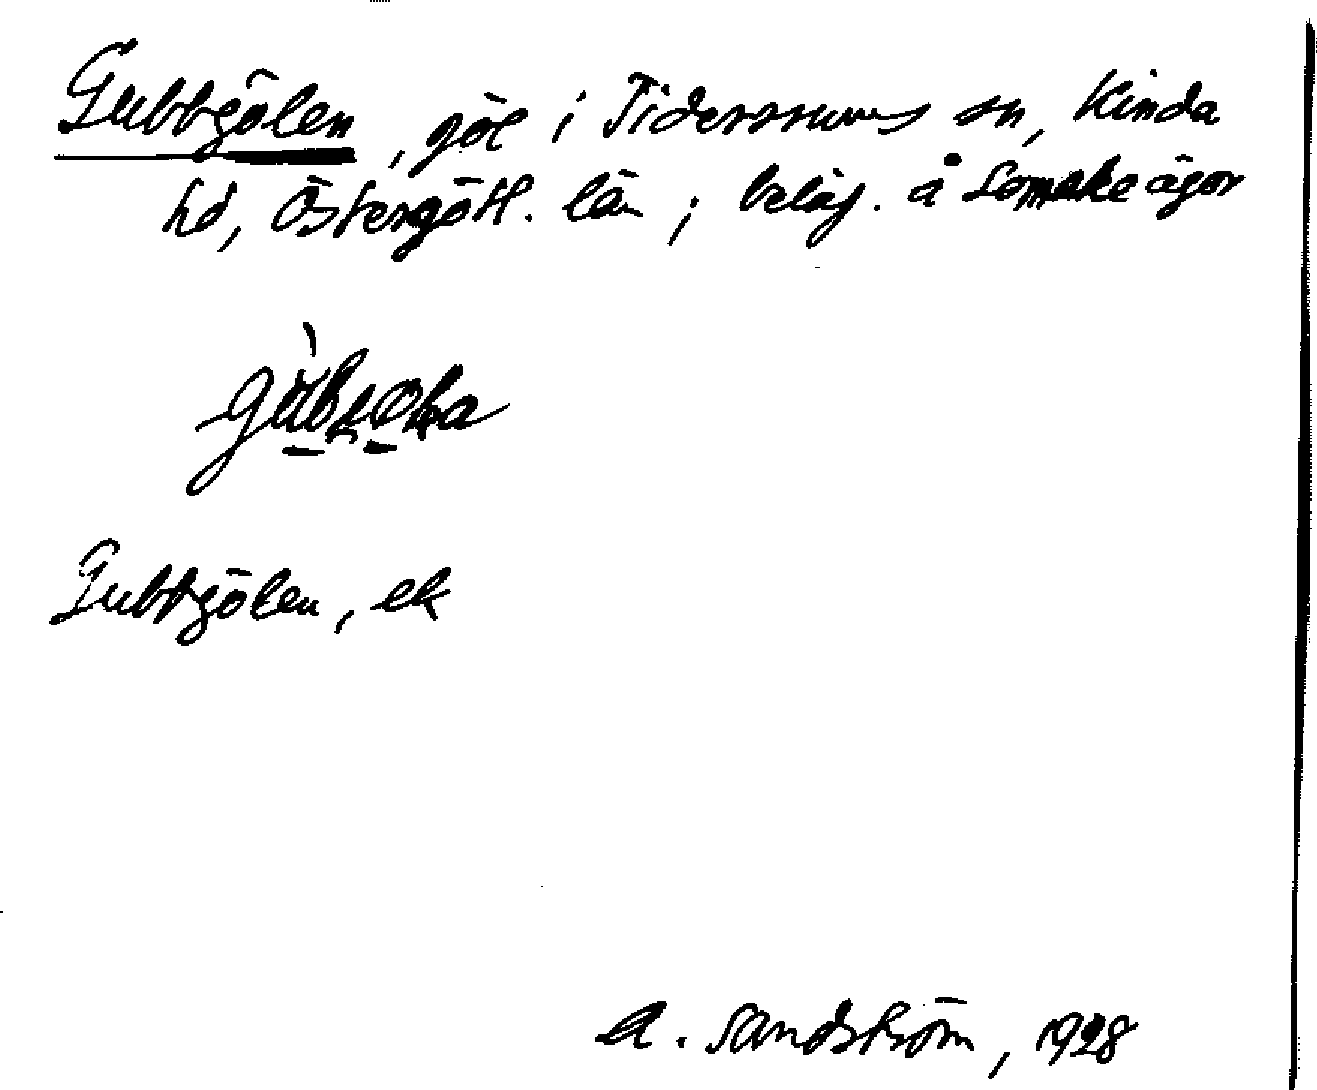 Gubbgölen, göl i Tidersrums sn, Kinda
hd, Östergötl. län; beläg. å ägor
Gubbgölen, ek
A. Sandström, 1928